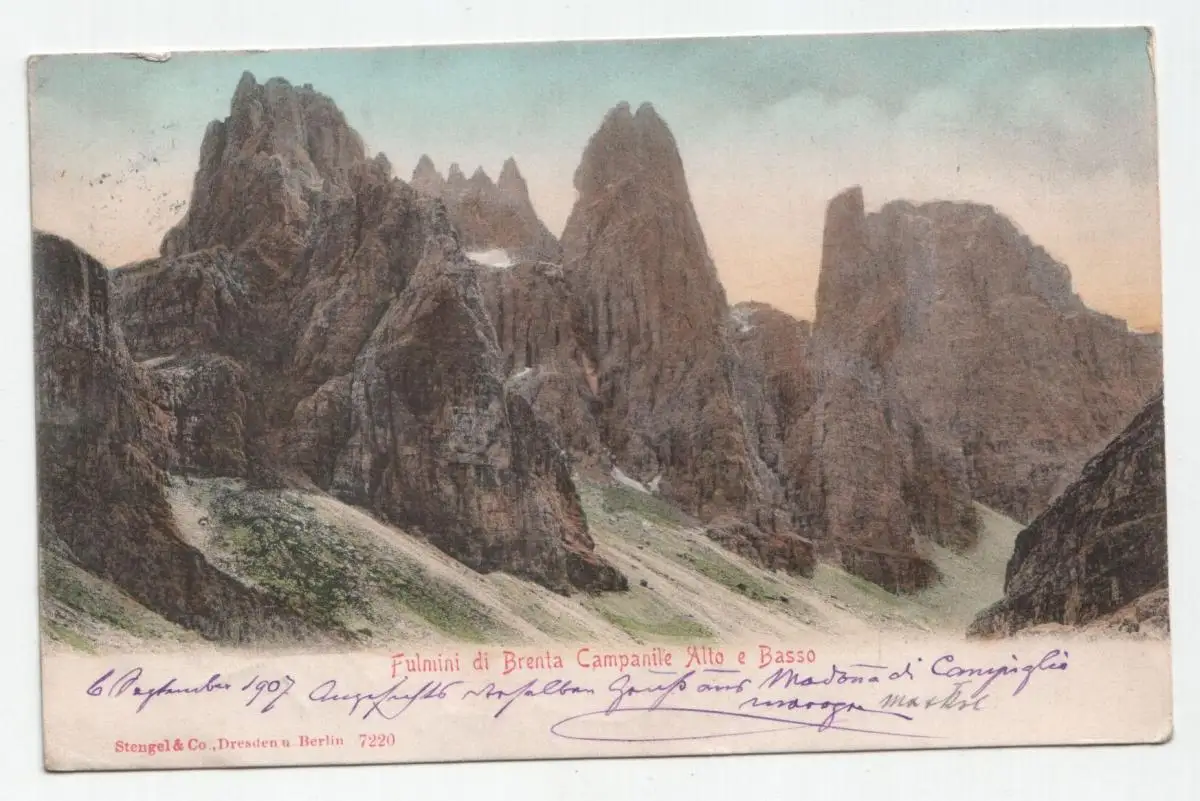 Fulmini di Brenta Campanile Alto e Basso
6 September 1907 Angesichts derselben Gruß aus Madona di Campiglio
Stengel & Co., Dresden u. Berlin 7220